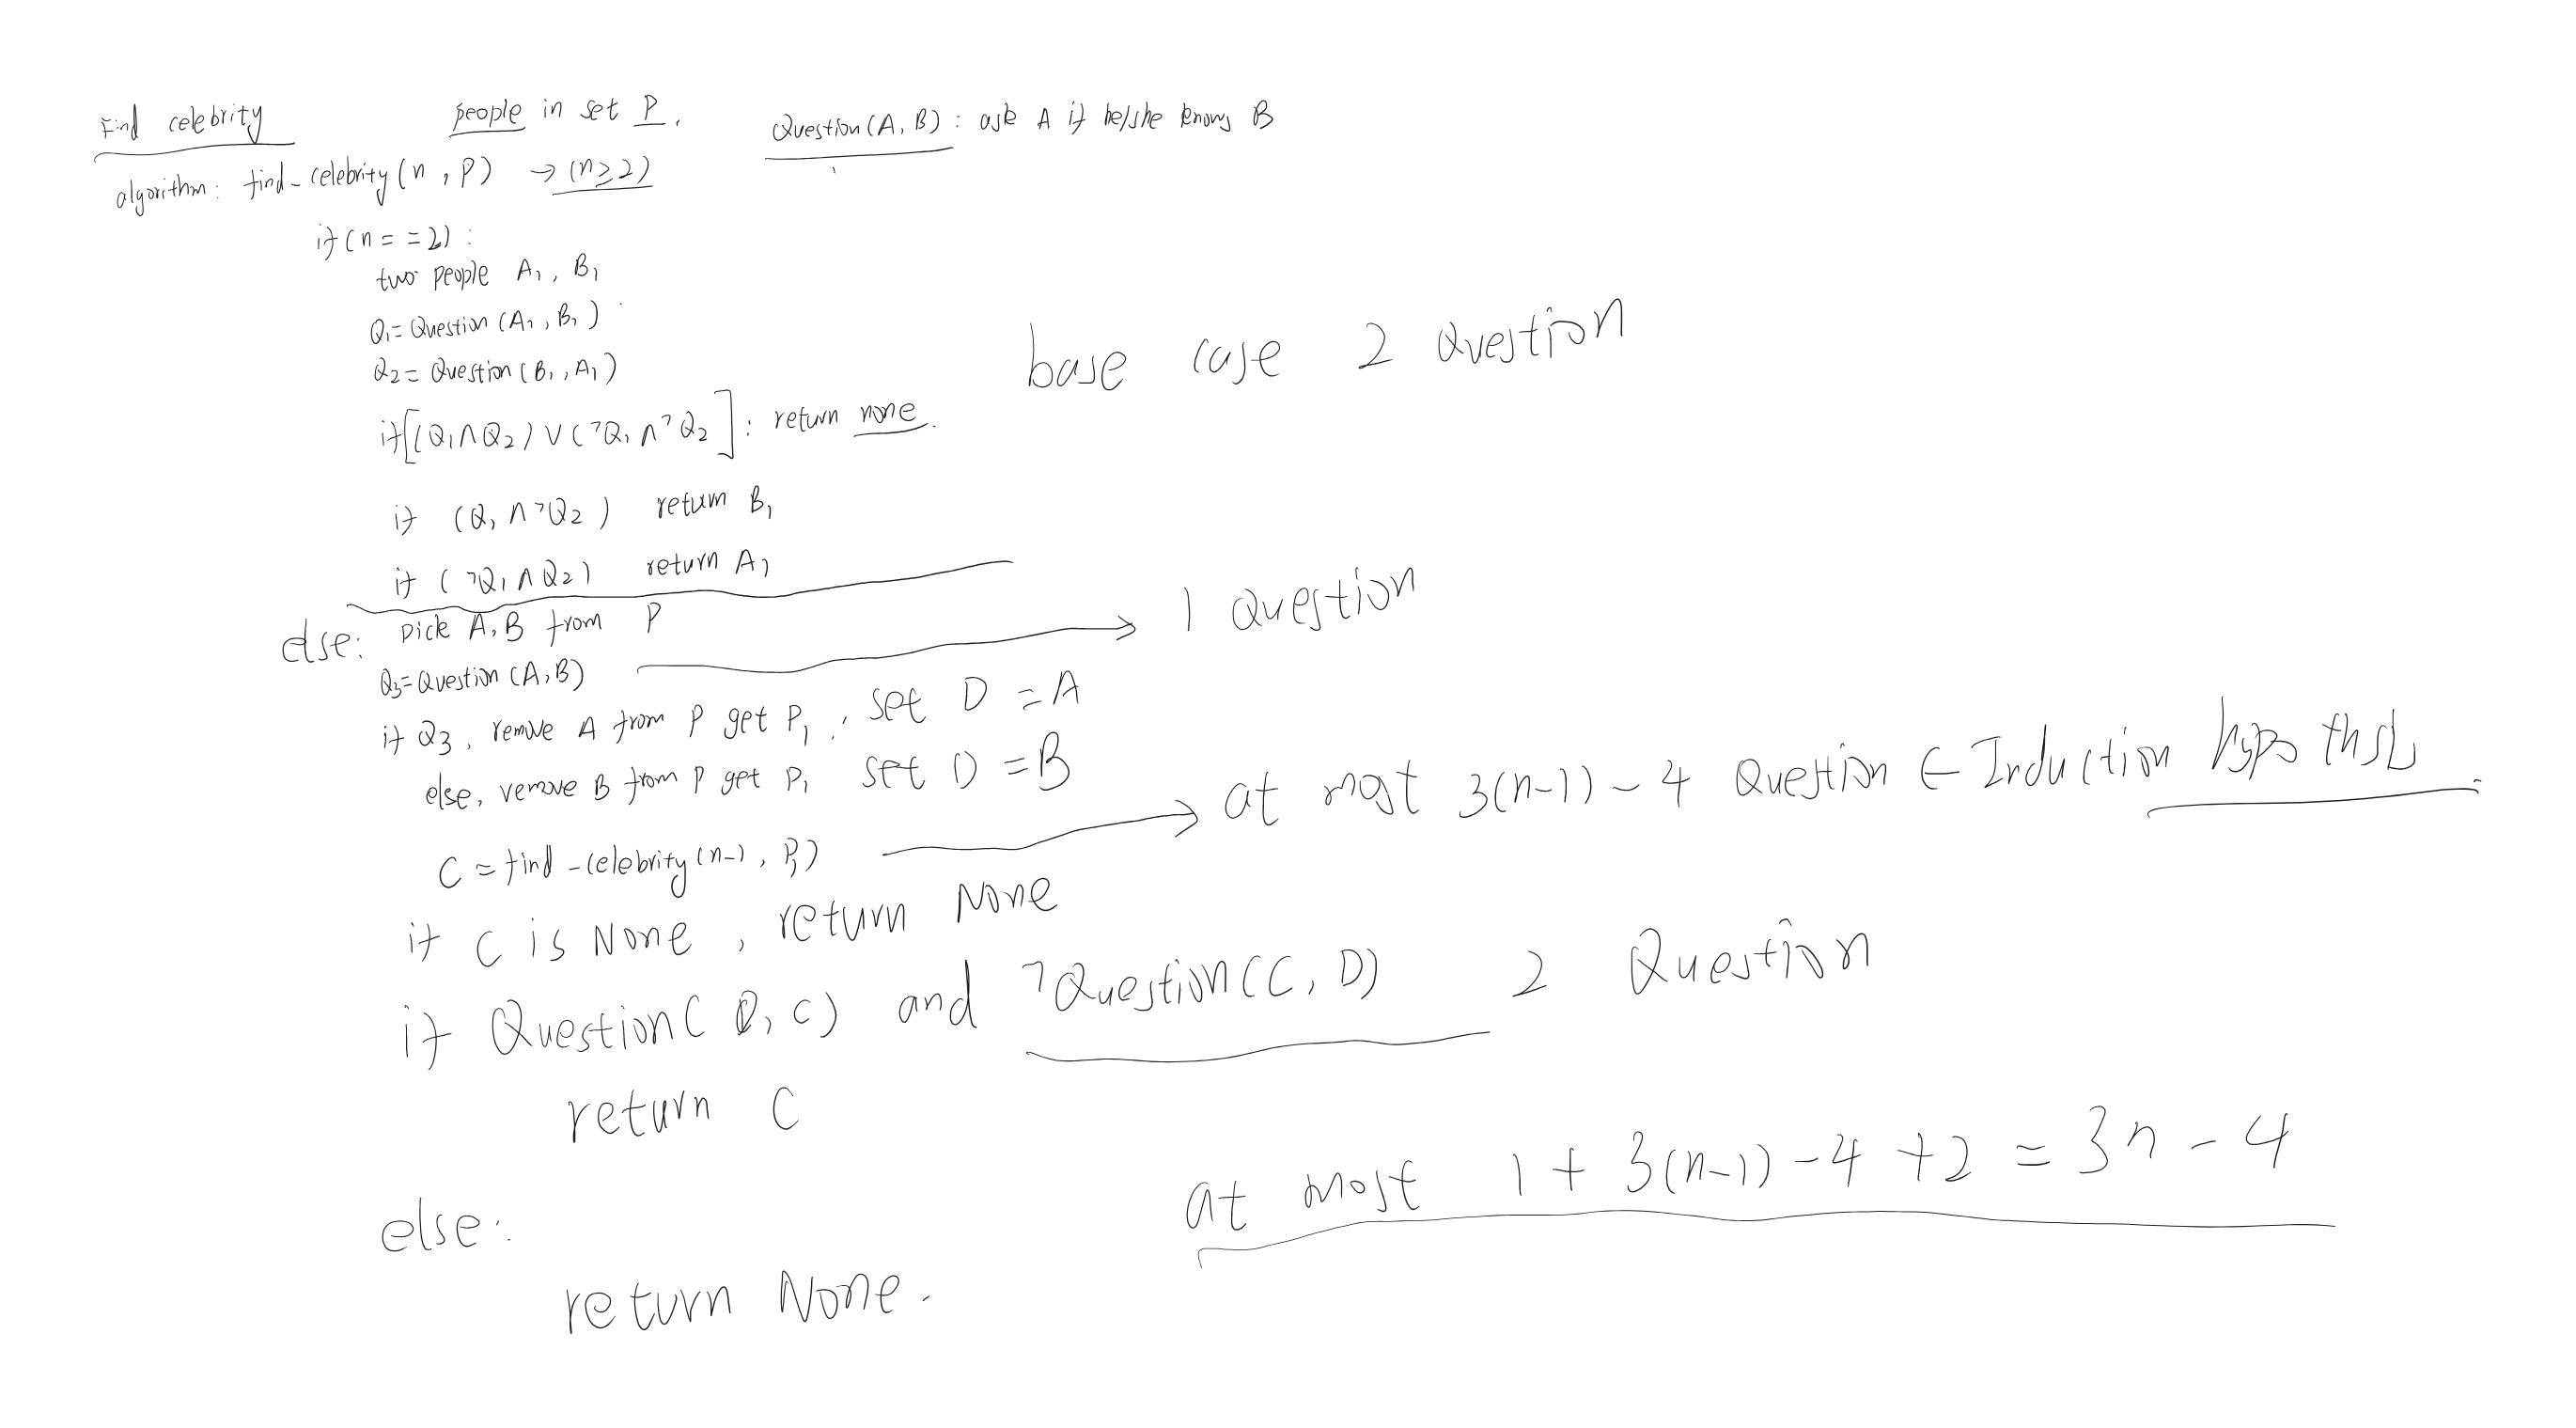 Find celebrity people in set P. Question(A, B) : ask A if he/she knows B
algorithm: find-celebrity(n, P) → (n≥2)
if(n==2):
two people A₁, B₁
Q₁=Question(A₁, B₁)
Q₂=Question(B₁, A₁)
base case 2 Question
if[(Q₁∧Q₂)∨(¬Q₁∧¬Q₂]: return none.
if (Q₁∧¬Q₂) return B₁
if (¬Q₁∧Q₂) return A₁
else: Pick A, B from P
Q₃=Question(A,B) → 1 Question
if Q₃, remove A from P get P₁, set D =A
else, remove B from P get P₁ set D =B
C = find-celebrity(n-1, P₁) → at most 3(n-1)-4 Question ← Induction
if C is None, return None
if Question(D,C) and ¬Question(C, D) 2 Question
return C
at most 1+3(n-1)-4+2=3n-4
else:
return None.